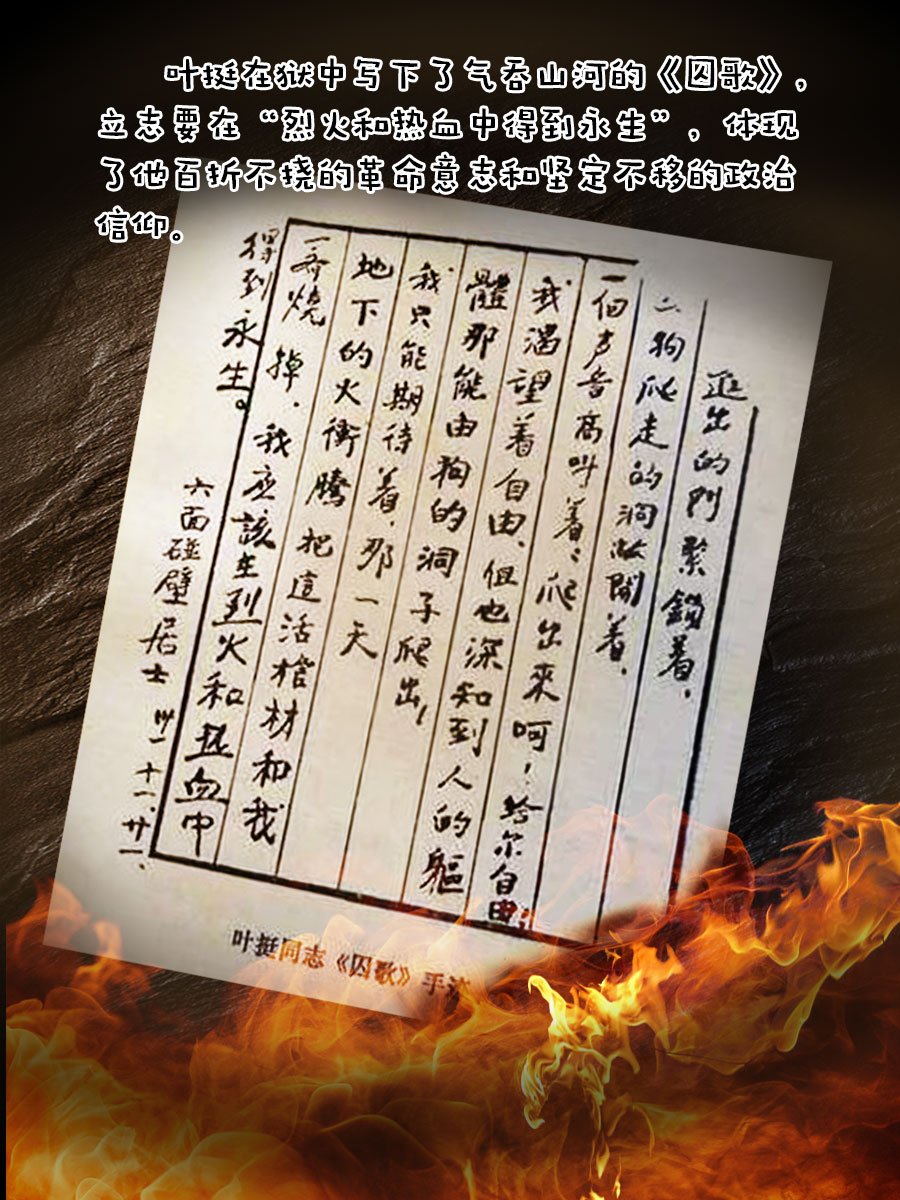 叶挺在狱中写下了气吞山河的《囚歌》，
立志要在“烈火和热血中得到永生”，体现
了他百折不挠的革命意志和坚定不移的政治
信仰。
進出的門緊鎖着，
一狗爬走的洞敞開着，
一個声音高叫着：爬出來呵！给尔自由；
我渴望着自由、但也深知到人的軀
體那能由狗的洞子爬出！
我只能期待着，那一天
地下的火衝騰把這活棺材和我
一齊燒掉，我应該在烈火和热血中
得到永生。
六面碰壁居士 卅一、十一、廿一、
叶挺同志《囚歌》手